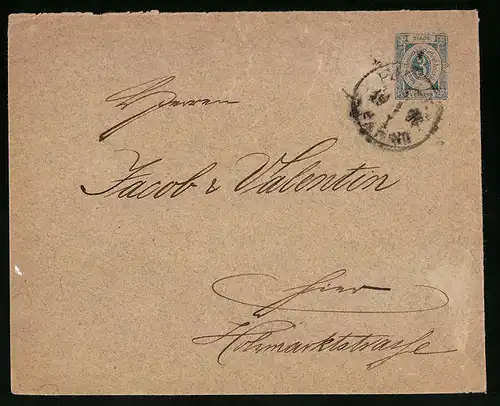 3
Herren
Jacob & Valentin
hier
Holzmarktstrasse